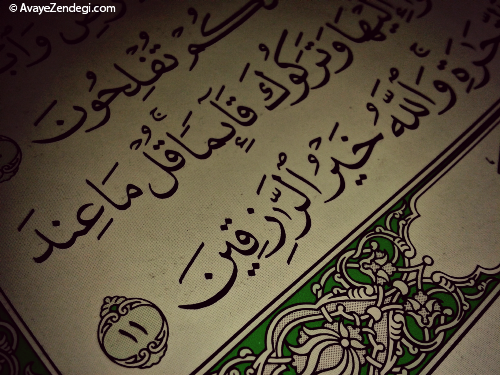 © AvayeZendegi.com
كُمْ تُفْلِحُونَ
إِلَيْهَا وَتَرَكُوكَ قَآئِمًا قُلْ مَا عِندَ
وَٱللَّهُ خَيْرُ ٱلرَّٰزِقِينَ
١١